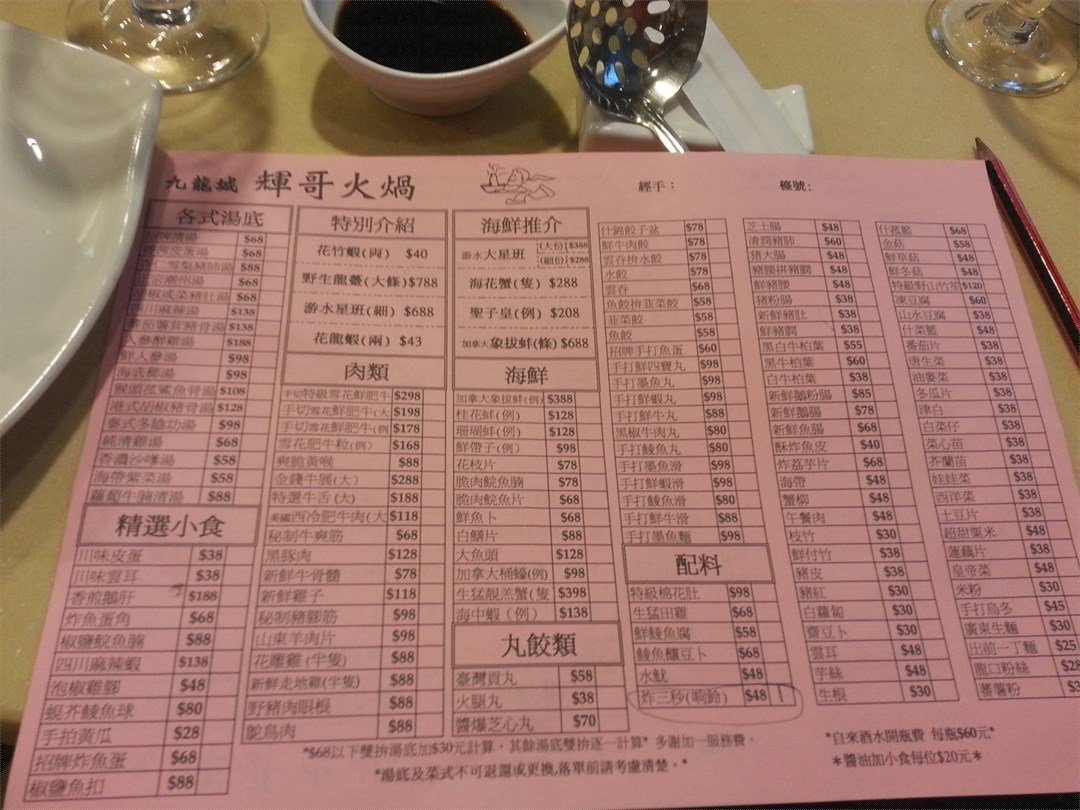 九龍城 輝哥火鍋
經手：
檯號:
各式湯底
清湯 $68
皮蛋湯 $68
雪梨豬肺湯 $88
蘭州湯 $68
椒咸菜豬肚湯 $68
四川麻辣湯 $138
番茄薯茸豬骨湯 $188
人參醉雞湯 $188
鮮人參湯 $98
海底椰湯 $98
猴頭菰鯊魚骨湯 $108
港式胡椒豬骨湯 $128
泰式冬陰功湯 $98
純清雞湯 $68
香濃沙嗲湯 $58
海帶紫菜湯 $58
蘿蔔牛腩清湯 $88
精選小食
川味皮蛋 $38
川味雲耳 $38
香煎鵝肝 $188
炸魚蛋角 $68
椒鹽鯇魚腩 $88
四川麻辣蝦 $138
泡椒雞腳 $48
蜆芥鯪魚球 $80
手拍黃瓜 $28
招牌炸魚蛋 $68
椒鹽魚扣 $88
特別介紹
花竹蝦(両) $40
野生龍躉(大條) $788
游水星班(細) $688
花龍蝦(兩) $43
肉類
手切特級雪花鮮肥牛 $298
手切雪花鮮肥牛(大 $198
手切雪花鮮肥牛(例 $178
雪花肥牛粒(例) $168
爽脆黃喉 $88
金錢牛展(大) $288
特選牛舌(大) $188
美國西冷肥牛肉(大 $118
秘制牛爽筋 $68
黑豚肉 $128
新鮮牛骨髓 $78
新鮮雞子 $118
秘制豬腳筋 $98
山東羊肉片 $98
花雕雞(半隻) $88
新鮮走地雞(半隻) $88
野豬肉眼根 $88
鴕鳥肉 $88
海鮮推介
游水大星班 (大份)$388 (細份)$288
海花蟹(隻) $288
聖子皇(例) $208
加拿大象拔蚌(條) $688
海鮮
加拿大象拔蚌(例) $388
桂花蚌(例) $128
珊瑚蚌(例) $128
鮮帶子(例) $98
花枝片 $78
脆肉鯇魚腩 $78
脆肉鯇魚片 $68
鮮魚卜 $68
白鱔片 $88
大魚頭 $128
加拿大桶蠔(例) $98
生猛靚羔蟹(隻 $398
海中蝦(例) $138
丸餃類
臺灣貢丸 $58
火腿丸 $38
醬爆芝心丸 $70
什錦餃子盆 $78
鮮牛肉餃 $78
雲吞拚水餃 $78
水餃 $78
雲吞 $68
魚餃拚韮菜餃 $58
韮菜餃 $58
魚餃 $58
招牌手打魚蛋 $60
手打鮮四寶丸 $98
手打墨魚丸 $98
手打鮮蝦丸 $98
手打鮮牛丸 $88
黑椒牛肉丸 $80
手打鯪魚丸 $80
手打墨魚滑 $98
手打鮮蝦滑 $98
手打鯪魚滑 $80
手打鮮牛滑 $88
手打墨魚麵 $98
配料
特級棉花肚 $98
生猛田雞 $68
鮮鯪魚腐 $58
鯪魚釀豆卜 $68
水魷 $48
炸三秒(响鈴) $48 1
芝士腸 $48
清潤豬肺 $60
豬大腸 $48
豬腰拼豬膶 $48
鮮豬腰 $48
豬粉腸 $38
新鮮豬肚 $38
鮮豬膶 $38
黑白牛柏葉 $55
黑牛柏葉 $60
白牛柏葉 $38
新鮮鵝粉腸 $85
新鮮鵝腸 $78
新鮮魚腸 $68
酥炸魚皮 $40
炸荔芋片 $68
海帶 $48
蟹柳 $48
午餐肉 $48
枝竹 $30
鮮付竹 $38
豬皮 $38
豬紅 $30
白蘿蔔 $30
齋豆卜 $30
雲耳 $48
芋絲 $48
生根 $30
什菰籃 $68
金菇 $58
鮮草菇 $48
鮮冬菇 $48
特級野山竹笙 $120
凍豆腐 $60
山水豆腐 $38
什菜籃 $48
番茄片 $38
唐生菜 $38
油麥菜 $38
冬瓜片 $38
津白 $38
白菜仔 $38
菜心苗 $38
芥蘭苗 $38
娃娃菜 $38
西洋菜 $38
土豆片 $38
超甜粟米 $48
蓮藕片 $38
皇帝菜 $48
米粉 $30
手打烏冬 $45
廣東生麵 $30
出前一丁麵 $25
龍口粉絲 $28
蕃薯粉
*$68以下雙拚湯底加$30元計算，其餘湯底雙拚逐一計算* 多謝加一服務費。
*湯底及菜式不可退還或更換,落單前請考慮清楚。*
*自來酒水開瓶費 每瓶$60元*
*醬油加小食每位$20元*